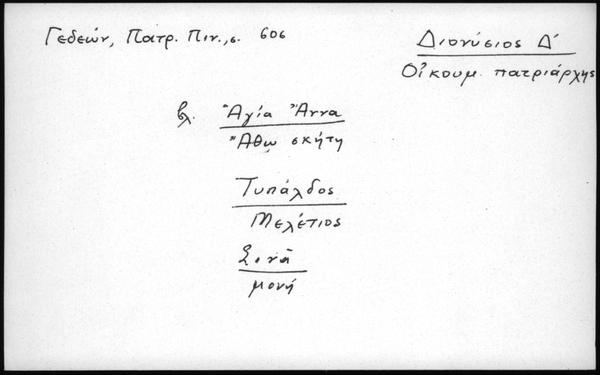 Γεδεών, Πατρ. Πιν., σ. 606
Διονύσιος Δ'
Οἰκουμ. πατριάρχης
βλ. Ἁγία Ἄννα
Ἄθω σκήτη
Τυπάλδος
Μελέτιος
Σινᾶ
μονή